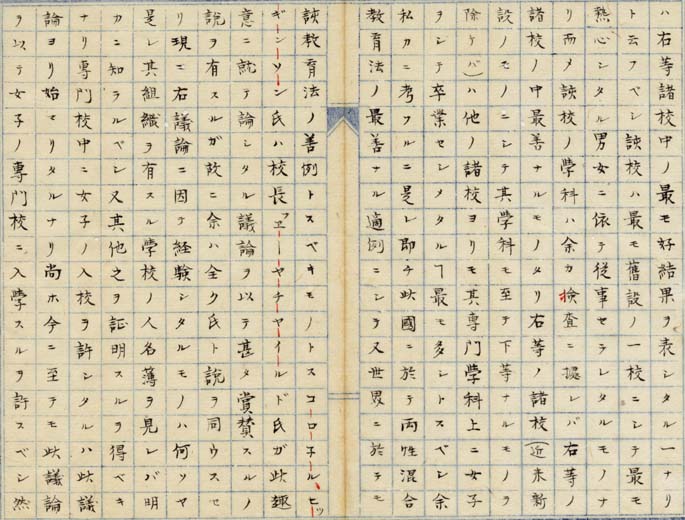 ハ右等諸校中ノ最モ好結果ヲ表シタル一ナリ
ト云フベシ該校ハ最モ舊設ノ一校ニシテ最モ
熱心シタル男女ニ依テ従事セラレタルモノナ
リ而メ該校ノ學科ハ余カ檢査ニ據レバ右等ノ
諸校ノ中最善ナルモノタリ右等ノ諸校(近来新
設ノモノニシテ其學科モ至テ下等ナルモノヲ
除ケバ)ハ他ノ諸校ヨリモ其専門學科上ニ女子
ヲシテ卒業セシメタルヿ最モ多シトスベシ余
私カニ考フルニ是レ即チ此國ニ於テ両性混合
教育法ノ最善ナル適例ニシテ又世界ニ於テモ
該教育法ノ善例トスベキモノトスコーロ子ール、ヒッ
ギーンソーン氏ハ校長ヱーヤーチヤーイールド氏ガ此趣
意ニ就テ論シタル議論ヲ以テ甚タ賞賛スルノ
説ヲ有スルガ故ニ余ハ全ク氏ト説ヲ同ウスセ
リ現ニ右議論ニ因テ経験シタルモノハ何ソヤ
是レ其組織ヲ有スル學校ノ人名薄ヲ見レバ明
カニ知ラルベシ又其他之ヲ証明スルヲ得ベキ
ナリ専門校中ニ女子ノ入校ヲ許シタルハ此議
論ヨリ始マリタルナリ尚ホ今ニ至テモ此議論
ヲ以テ女子ノ専門校ニ入學スルヲ許スベシ然